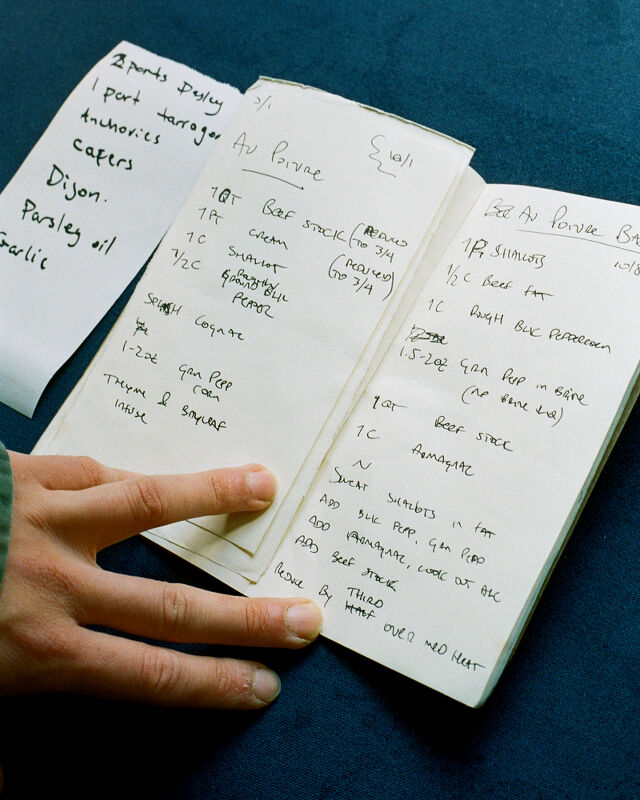 2 parts Parsley
1 part tarragon
Anchovies
capers
Dijon.
Parsley oil
Garlic
10/1
Au Poivre
1QT BEEF STOCK (REDUCED TO 3/4
1PT CREAM (REDUCED TO 3/4)
1C SHALLOT
1/2C ROUGHLY GROUND BLK PEPPER
SPLASH COGNAC
1-2oz GRN PEPP CORN
THYME & BAYLEAF
INFUSE
Au Poivre BA
10/8
1PT SHALLOTS
1/2C BEEF FAT
1C ROUGH BLK PEPPERCORN
1.5-2oz GRN PEPP IN BRINE
(NO BRINE LIQ)
1QT BEEF STOCK
1C ARMAGNAC
~
SWEAT SHALLOTS IN FAT
ADD BLK PEPP, GRN PEPP
ADD ARMAGNAC, COOK OUT ALC
ADD BEEF STOCK
REDUCE BY THIRD OVER MED HEAT